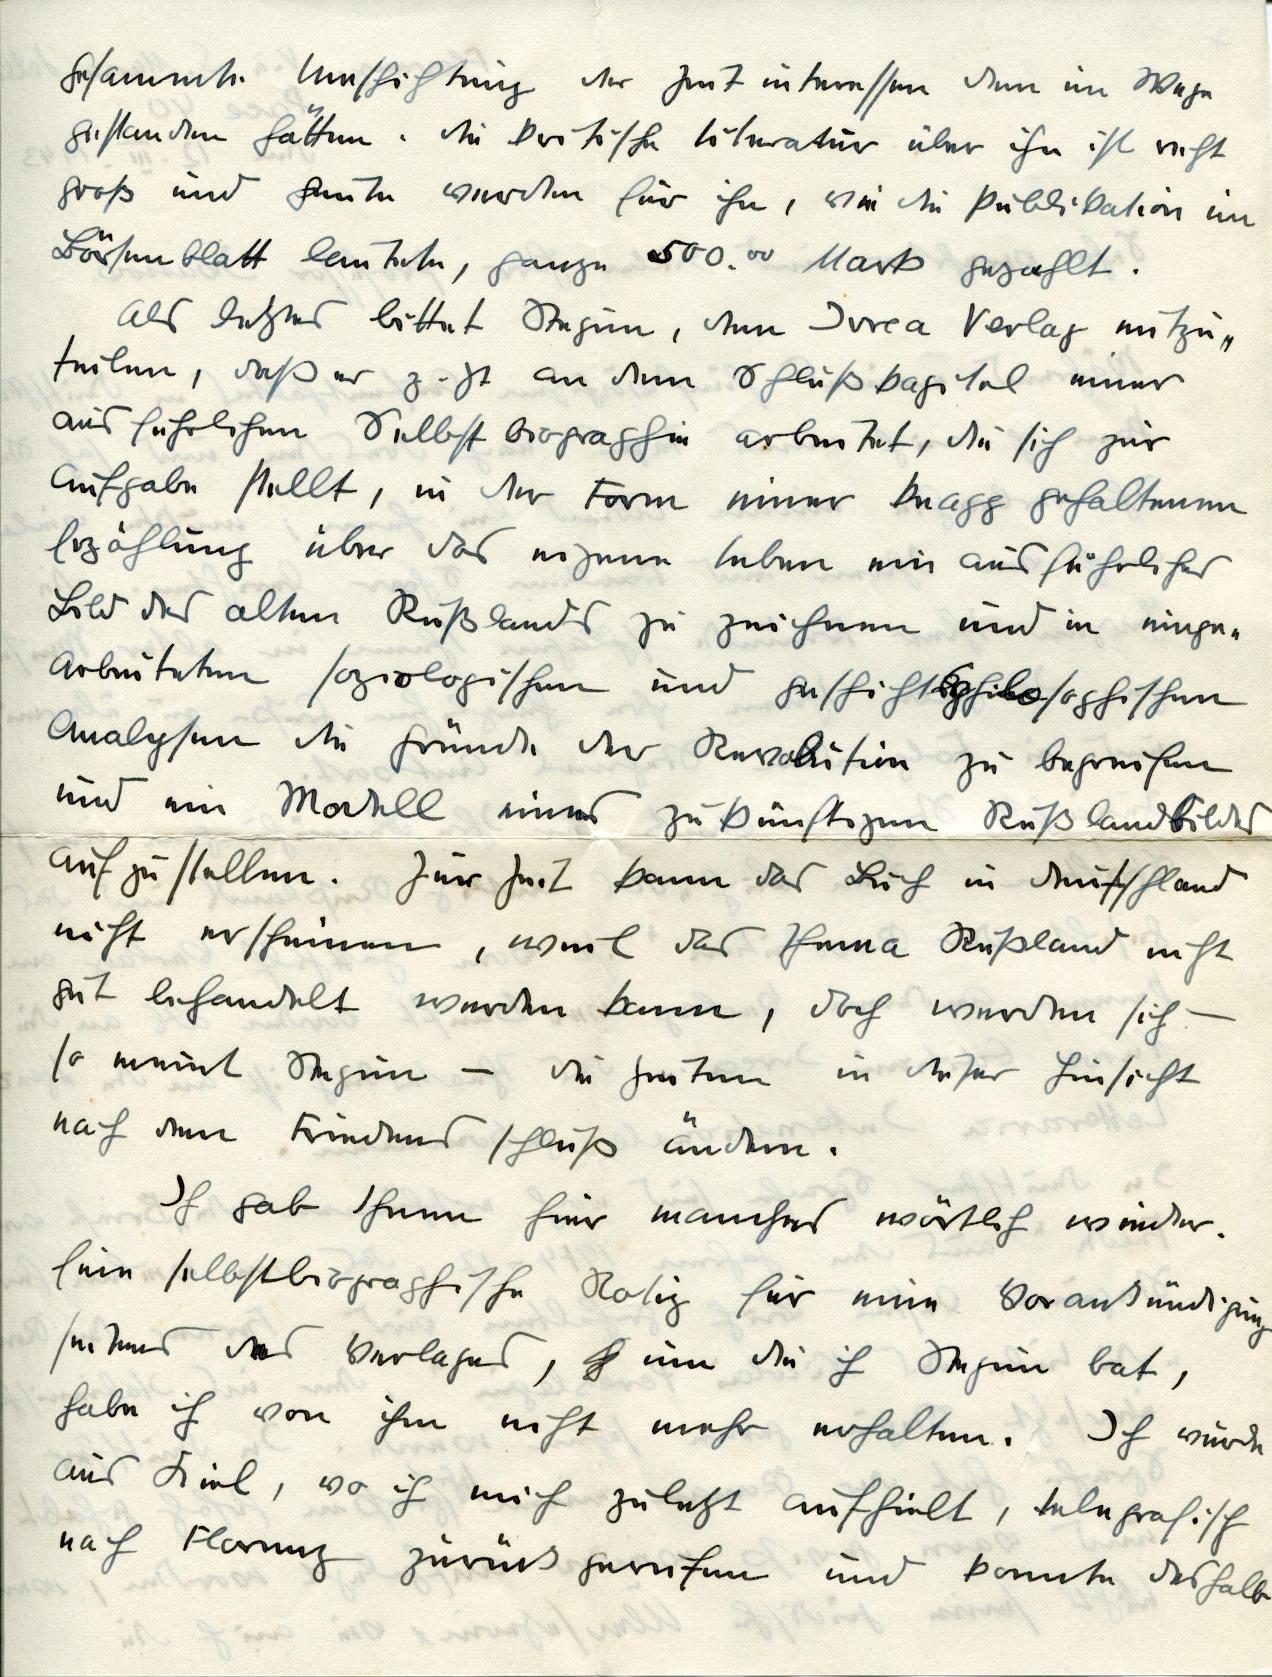 gesammte Umschichtung der Zeitinteressen dem im Wege
gestanden hätten. die kritische Literatur über ihn ist recht
groß und heute werden für ihn, wie die Publikation im
Börsenblatt lautete, ganze 500.00 Mark gezahlt.
Als letztes bittet Stepun, dem Ivrea Verlag mitzu„
teilen, daß er z. Zt an dem Schlußkapitel einer
ausführlichen Selbstbiographie arbeitet, die sich zur
Aufgabe stellt, in der Form einer knapp gehaltenen
Erzählung über das eigene Leben ein ausführliches
Bild des alten Rußlands zu zeichnen und in einge„
arbeiteten soziologischen und geschichtsphilosophischen
Analysen die Gründe der Revolution zu begreifen
und ein Modell eines zukünftigen Rußlandbildes
aufzustellen. Zur Zeit kann das Buch in Deutschland
nicht erscheinen, weil das Thema Rußland nicht
gut behandelt werden kann, doch werden sich —
so meint Stepun — die Zeiten in dieser Hinsicht
nach dem Friedensschluß ändern.
Ich gab Ihnen hier manches wörtlich wieder.
Eine selbstbiographische Notiz für eine Vorankündigung
seitens des Verlages, um die ich Stepun bat,
habe ich von ihm nicht mehr erhalten. Ich wurde
aus Kiel, wo ich mich zuletzt aufhielt, telegrafisch
nach Florenz zurückgerufen und konnte deshalb